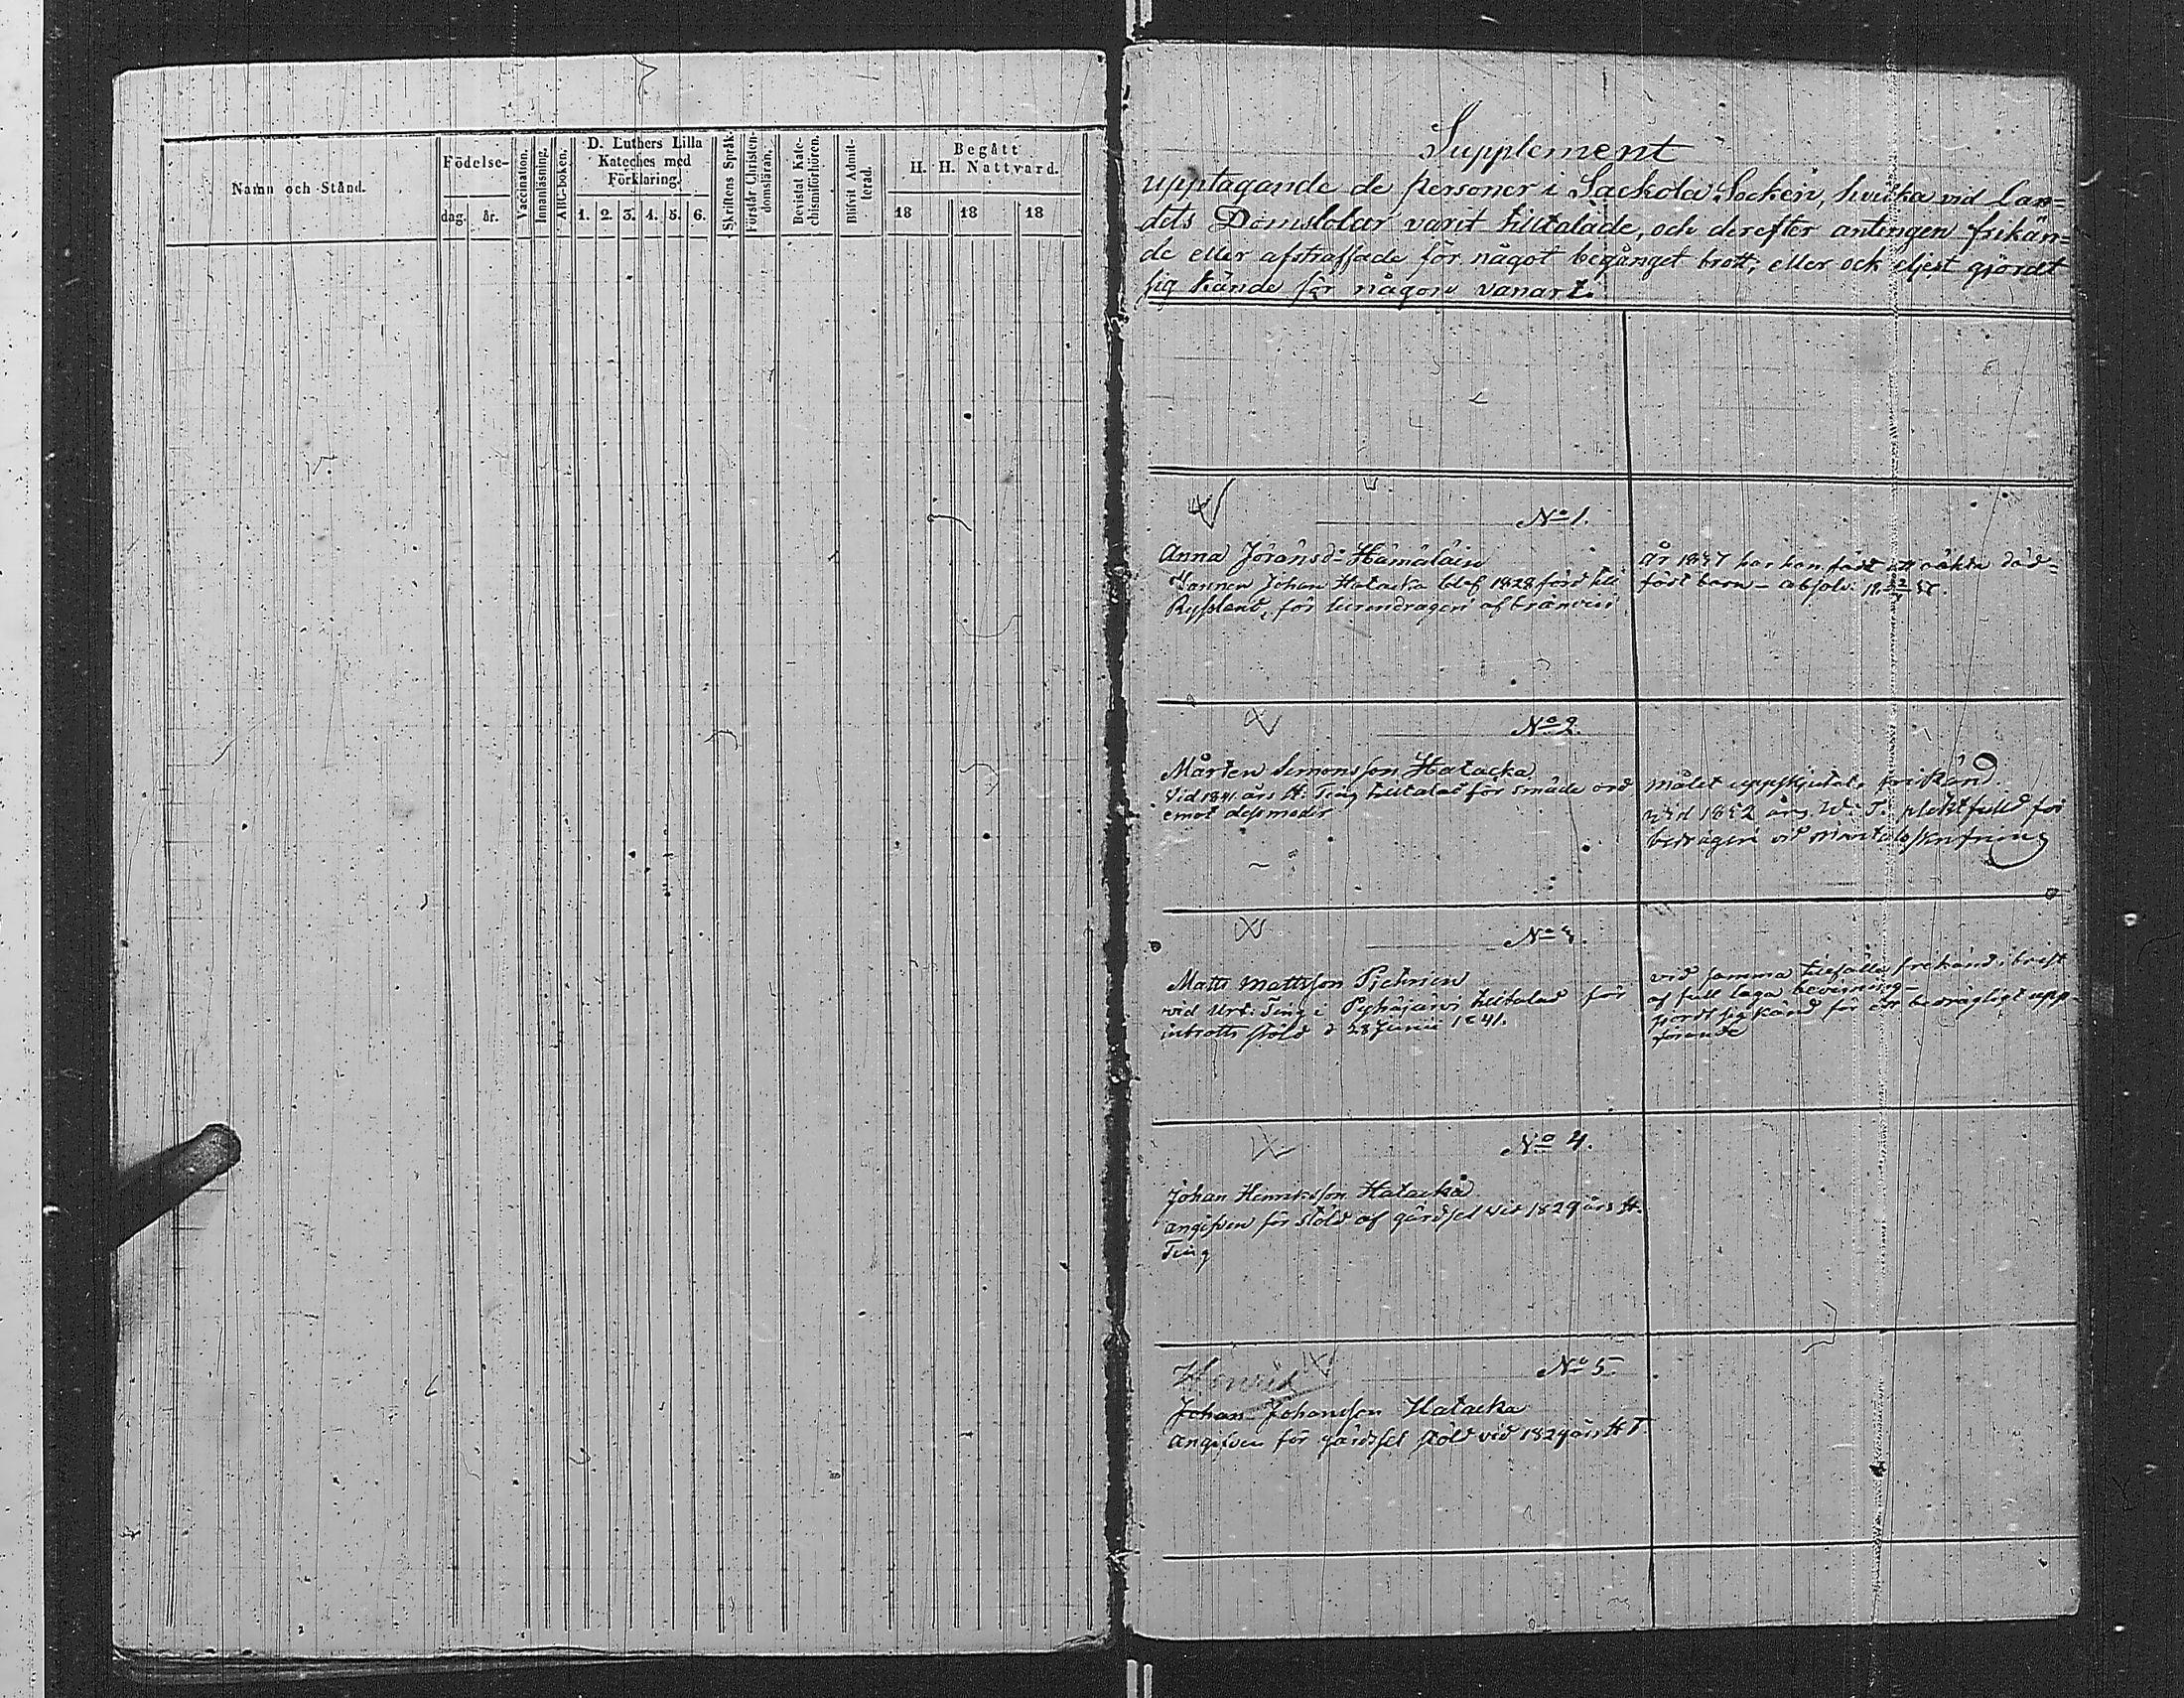 Namn och Stånd.
Födelse-
dag. år.
Vaccination.
Innanläsning.
ABC-boken.
D. Luthers Lilla
Kateches med
Förklaring.
1. 2. 3. 4. 5. 6.
Skriftens Språk.
Förstår Christen-
domsläran.
Bevistat Kate-
chismiförhören.
Blifvit Admit-
terad.
Begått
H. H. Nattvard.
18 18 18
Supplement
upptagande de personer i Sackola Socken, hvilka vid Lan=
dets Domstolar varit tilltalade, och derefter antingen frikän=
de eller afstraffade för något begånget brott, eller ock eljest gjordt
sig kände för någon vanart.
No 1.
Anna Jöransdr Hämäläin
Mannen Johan Hatacka blef 1828 förd till
Ryssland, för lurendrägeri af bränvin
År 1847 har hon födt ett oäkta död=
född barn - absolv.
No 2.
Mårten Simonsson Hatacka
Vid 1841 års H. Ting tilltalad för smäde ord
emot dess moder
målet uppskjutet, frikänd
vid 1842 års W. T. pliktfälld för
bedrägeri vid Mantalsskrifning
No 3.
Matts Mattsson Pjetinen
vid Urt. Ting i Pyhäjärvi tilltalad för
inbrotts stöld d 28 Junii 1841.
vid samma tillfälle frikänd i brist
af full laga bevisning-
gjordt sig känd för ett bedrägligt upp-
förande
No 4.
Johan Henriksson Hatacka
angifven för stöld af gärdsel vid 1829 års H.
Ting
No 5
Henrik
Johan Johansson Hatacka
angifven för gärdsel stöld vid 1829 års H T.